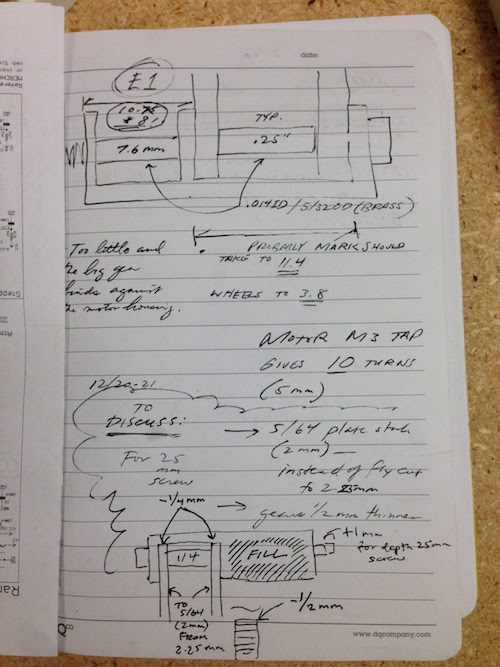 date:
E1
10.75
7.6 mm
TYP.
.25"
.014ID / 5/32OD (BRASS)
Too little and
the big gear
binds against
the motor housing.
PROBABLY MARK SHOULD
TAKE TO 11.4
WHEELS TO 3.8
MOTOR M3 TAP
GIVES 10 TURNS
(5 mm)
12/20-21
TO
DISCUSS:
For 25
mm
screw
→ 5/64 plate stock
(2 mm) —
instead of fly cut
to 2.25mm
→ gears 1/2 mm thinner
-1/4mm
1/4
FILL
+1mm
for depth 25mm
screw
TO
5/64
(2mm)
FROM
2.25mm
-1/2mm
www.dqcompany.com
Ran